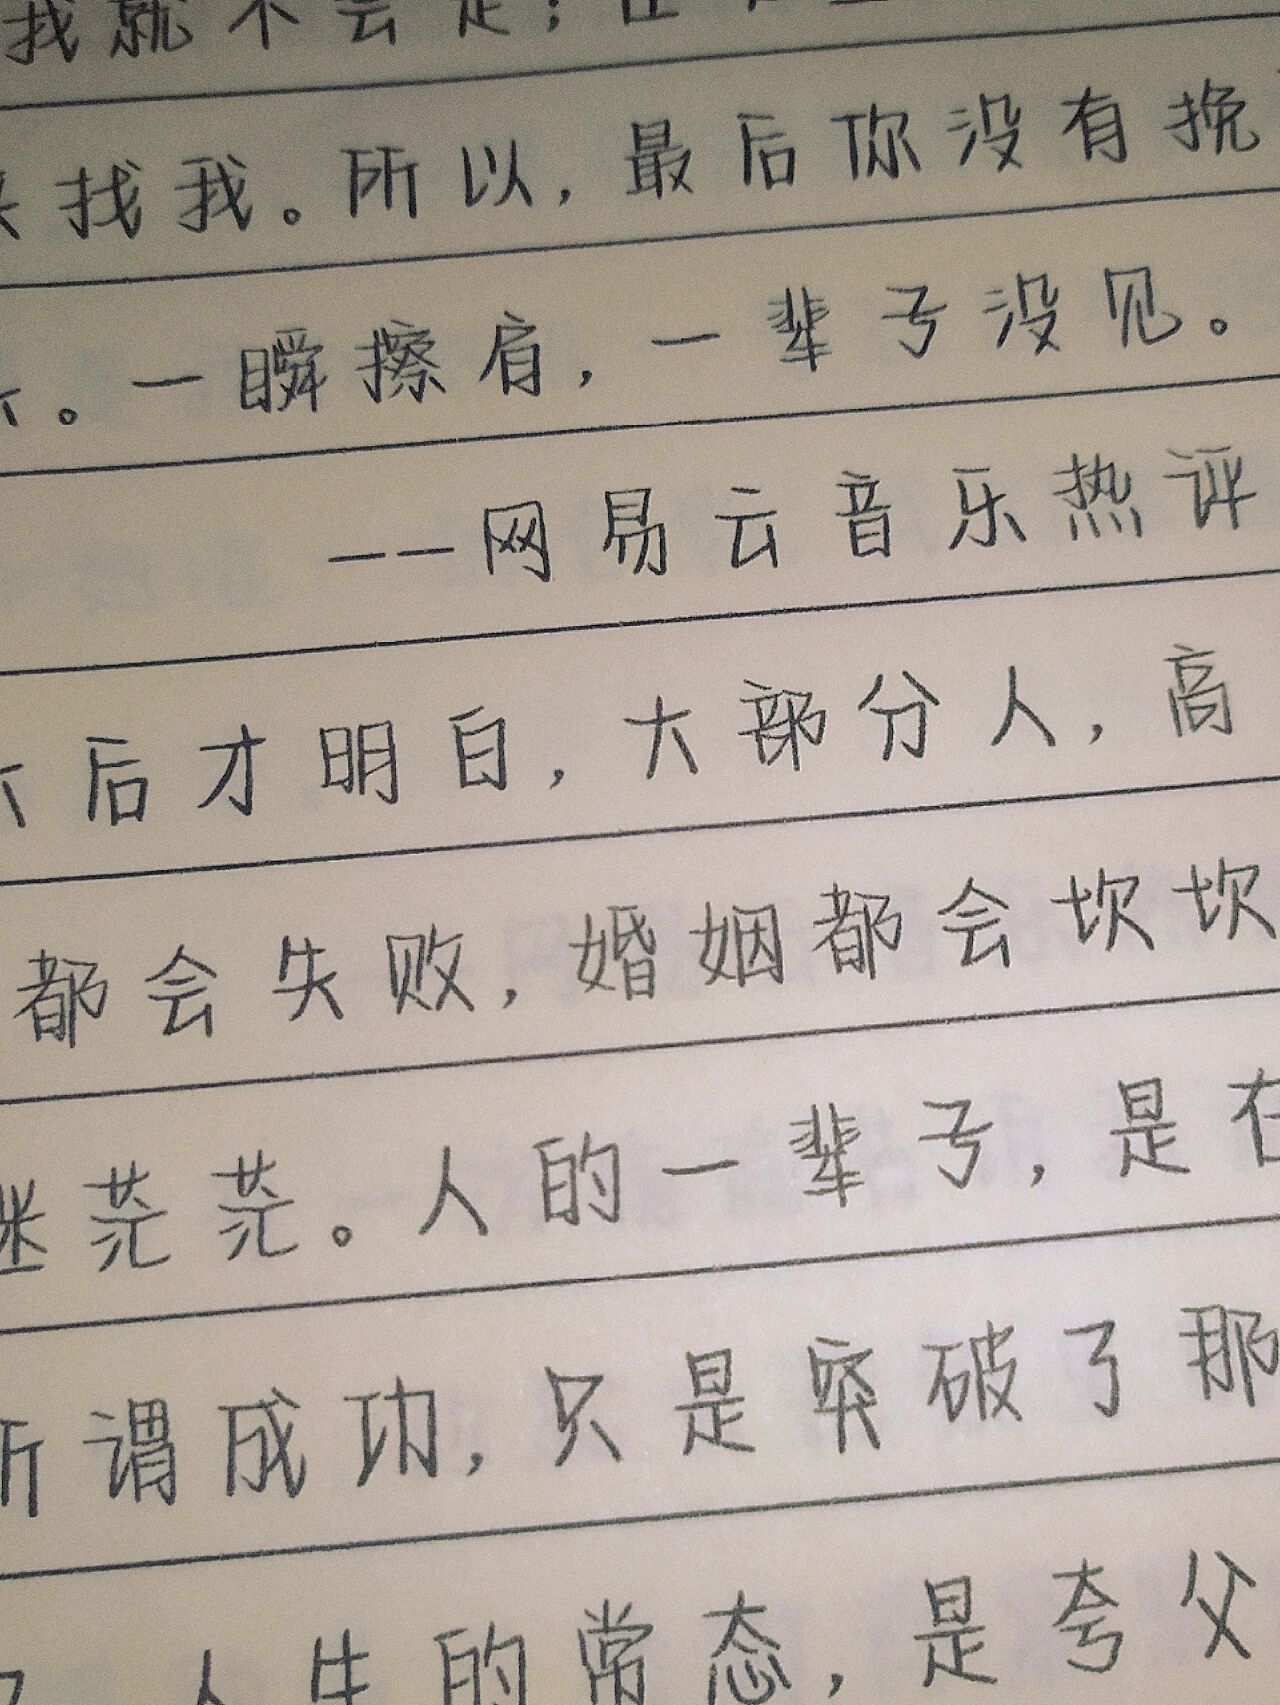 我就不会走；在
来找我。所以，最后你没有挽
。一瞬擦肩，一辈子没见。
--网易云音乐热评
后才明白，大部分人，高
都会失败，婚姻都会坎坎
迷茫茫。人的一辈子，是在
所谓成功，只是突破了那
人生的常态，是夸父